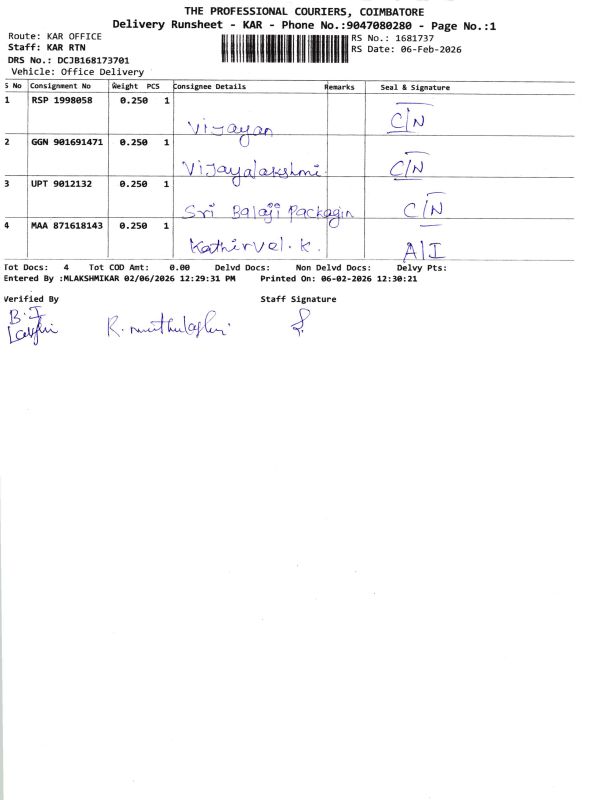 THE PROFESSIONAL COURIERS, COIMBATORE
Delivery Runsheet - KAR - Phone No.:9047080280 - Page No.:1
Route: KAR OFFICE
RS No.: 1681737
Staff: KAR RTN
RS Date: 06-Feb-2026
DRS No.: DCJB168173701
Vehicle: Office Delivery
S No Consignment No Weight PCS Consignee Details Remarks Seal & Signature
1 RSP 1998058 0.250 1
Vijayan C/N
2 GGN 901691471 0.250 1
Vijayalakshmi C/N
3 UPT 9012132 0.250 1
Sri Balaji Packagin C/N
4 MAA 871618143 0.250 1
Kathirvel.K. A/I
Tot Docs: 4 Tot COD Amt: 0.00 Delvd Docs: Non Delvd Docs: Delvy Pts:
Entered By :MLAKSHMIKAR 02/06/2026 12:29:31 PM Printed On: 06-02-2026 12:30:21
Verified By Staff Signature